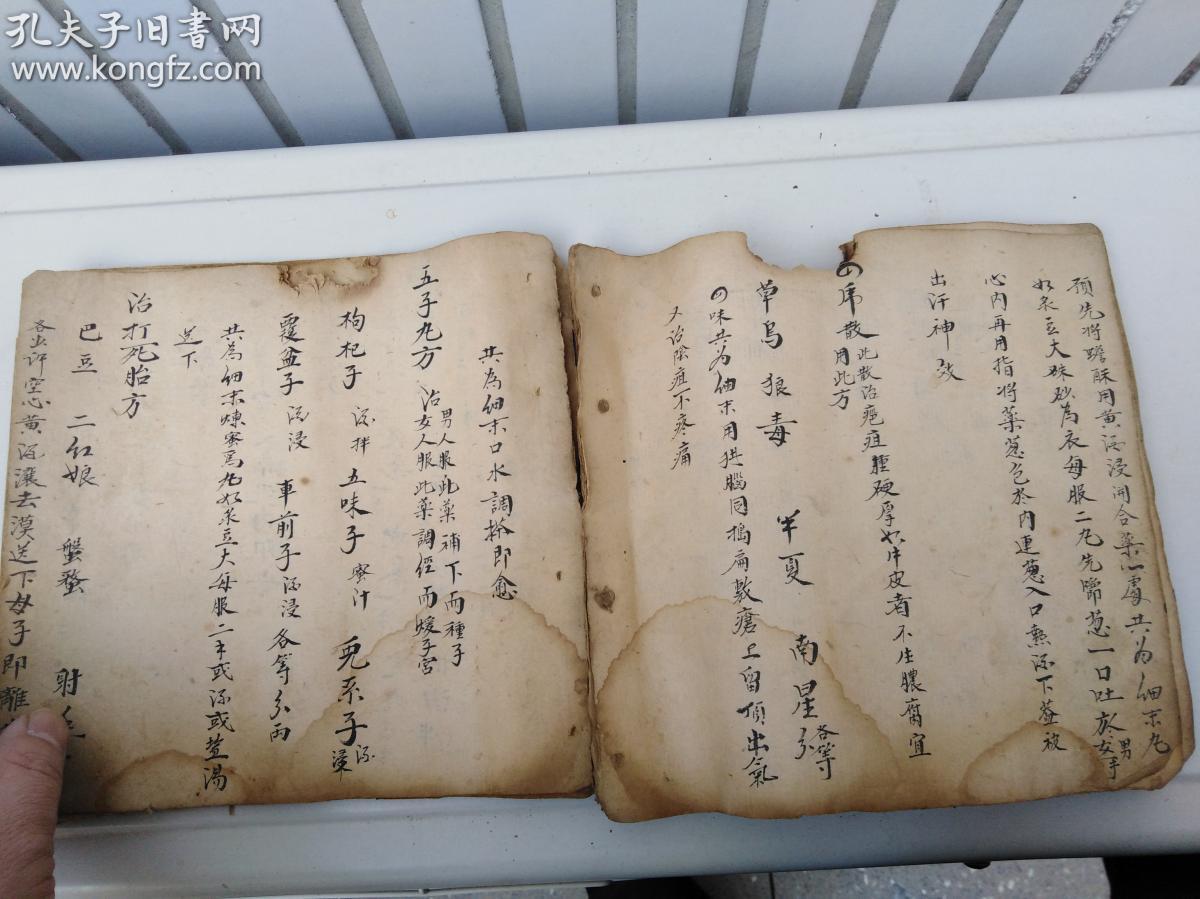 孔夫子旧书网
www.kongfz.com
預先將蟾酥用黄酒浸開合藥一處共为細末丸
如菉豆大硃砂為衣每服二丸先嚼葱一口吐於男女手
心內再用指將藥葱包於內連葱入口熱酒下蓋被
出汗神效
四虎散此散治疤疽腫硬厚如牛皮者不生膿腐宜
用此方
草烏 狼毒 半夏 南星各等分
四味共为細末用猪腦同搗扁敷瘡上留頂出氣
又治陰疽不疼痛
共為細末口水調搽即愈
五子丸方 治男人服此藥補下而種子
女人服此藥調經而煖子宮
枸杞子酒拌 五味子蜜汁 兎糸子酒浸
覆盆子酒浸 車前子酒浸各等分兩
共為細末煉蜜為丸如菉豆大每服二 或酒或 湯
送下
治打死胎方
巴豆 二紅娘 蟹蝥 射
各少許空心黄酒滚去漠送下 子即離